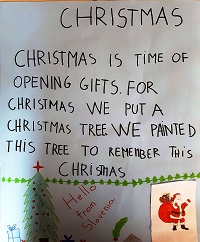 CHRISTMAS
CHRISTMAS IS TIME OF
OPENING GIFTS. FOR
CHRISTMAS WE PUT A
CHRISTMAS TREE. WE PAINTED
THIS TREE TO REMEMBER THIS
CHRISTMAS
Hello
from
Slovenia